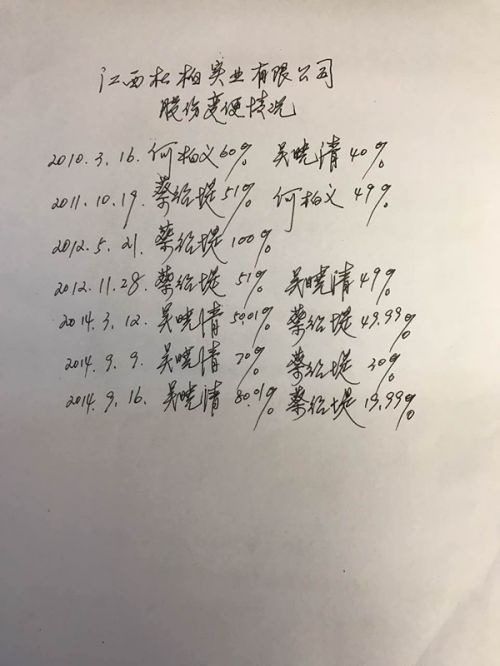 江西松柏实业有限公司
股份变便情况
2010.3.16. 何柏义60% 吴晓清40%
2011.10.19. 蔡绍堤51% 何柏义49%
2012.5.21. 蔡绍堤100%
2012.11.28. 蔡绍堤51% 吴晓清49%
2014.3.12. 吴晓清50.01% 蔡绍堤49.99%
2014.9.9. 吴晓清70% 蔡绍堤30%
2014.9.16. 吴晓清80.01% 蔡绍堤19.99%